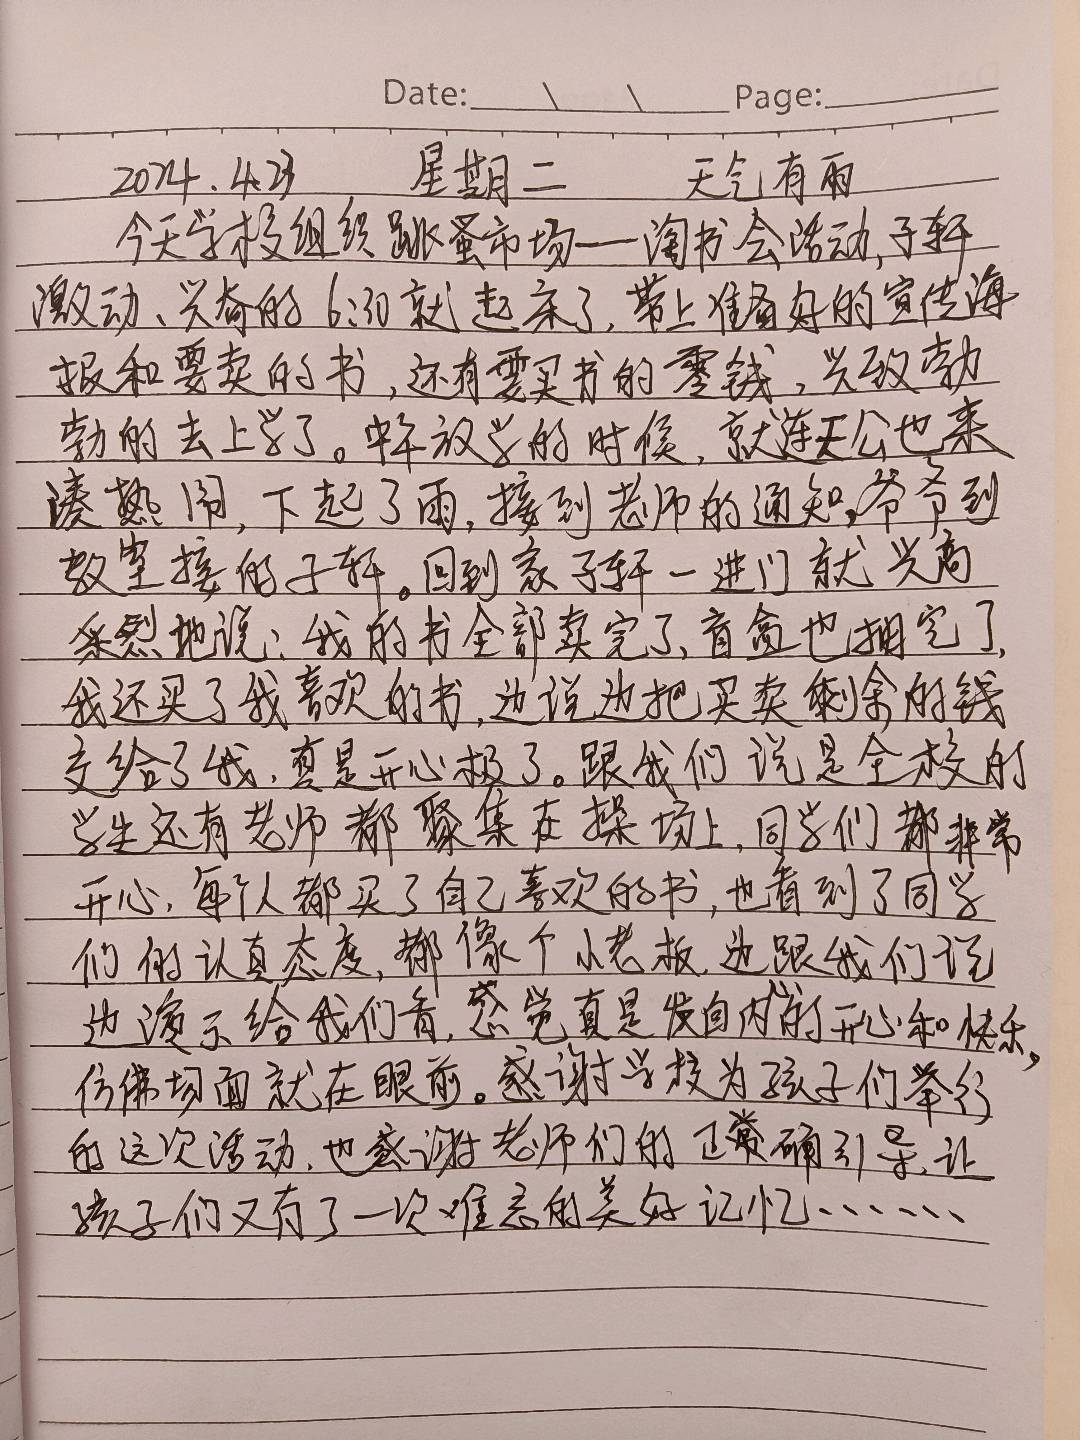 Date: \ \ Page:
2024.4.23 星期二 天气有雨
今天学校组织跳蚤市场——淘书会活动,子轩
激动、兴奋的6:30就起床了,带上准备好的宣传海
报和要卖的书,还有要买书的零钱,兴致勃
勃的去上学了。中午放学的时候,就连天公也来
凑热闹,下起了雨,接到老师的通知,爷爷到
教室接的子轩。回到家子轩一进门就兴高
采烈地说:我的书全部卖完了,盲盒也抽完了,
我还买了我喜欢的书,边说边把买卖剩余的钱
交给了我,真是开心极了。跟我们说是全校的
学生还有老师都聚集在操场上,同学们都非常
开心,每个人都买了自己喜欢的书,也看到了同学
们的认真态度,都像个小老板,边跟我们说
边演示给我们看,感觉真是发自内心的开心和快乐,
仿佛场面就在眼前。感谢学校为孩子们举行
的这次活动,也感谢老师们的正确引导,让
孩子们又有了一次难忘的美好记忆、、、、、、